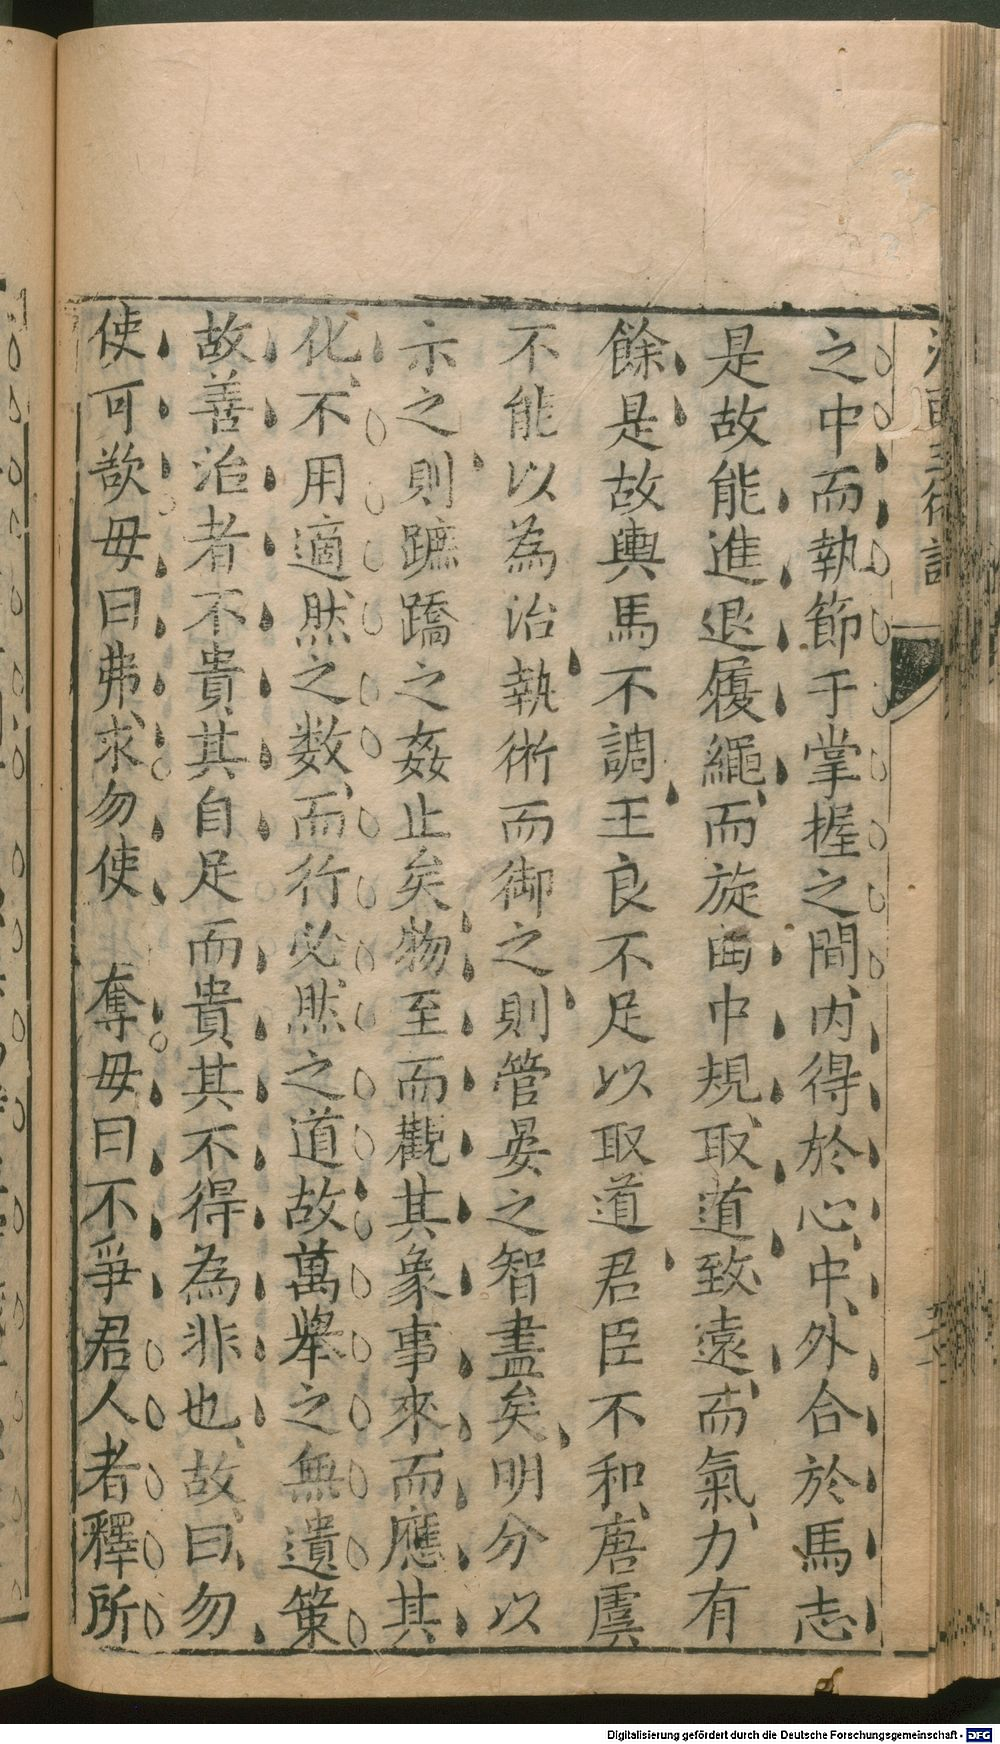 之中而執節于掌握之間内得於心中外合於馬志
是故能進退履繩而旋曲中規取道致遠而氣力有
餘是故輿馬不調王良不足以取道君臣不和唐虞
不能以為治執術而御之則管晏之智盡矣明分以
示之則蹠蹻之姦止矣物至而觀其象事來而應其
化不用適然之数而行必然之道故萬舉之無遺策
故善治者不貴其自足而貴其不得為非也故曰勿
使可欲毋曰弗求勿使 奪毋曰不爭君人者釋所
Digitalisierung gefördert durch die Deutsche Forschungsgemeinschaft - DFG